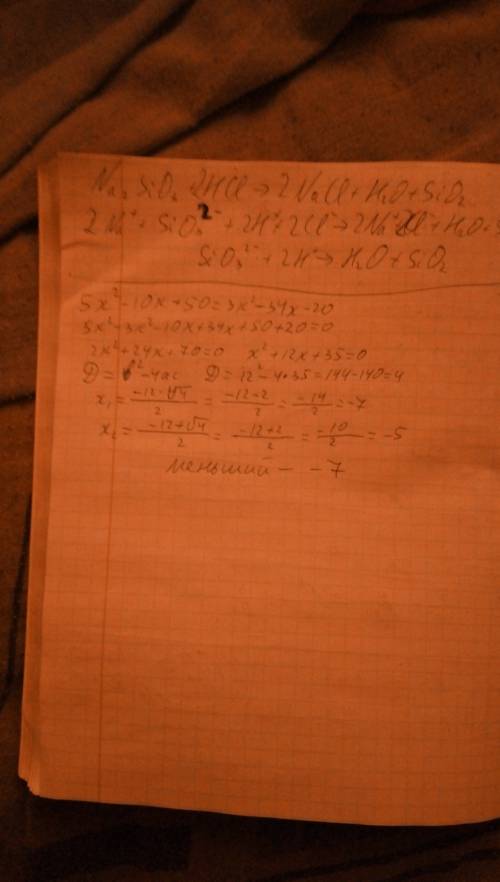 Na₂SiO₃ 2HCl → 2NaCl + H₂O + SiO₂
2Na⁺ + SiO₃²⁻ + 2H⁺ + 2Cl⁻ → 2Na⁺ 2Cl⁻ + H₂O +
SiO₃²⁻ + 2H⁺ → H₂O + SiO₂
5x² - 10x + 50 = 3x² - 34x - 20
5x² - 3x² - 10x + 34x + 50 + 20 = 0
2x² + 24x + 70 = 0 x² + 12x + 35 = 0
D = b² - 4ac D = 12² - 4·35 = 144 - 140 = 4
x₁ = (-12 - √4)/2 = (-12 - 2)/2 = -14/2 = -7
x₂ = (-12 + √4)/2 = (-12 + 2)/2 = -10/2 = -5
меньший - -7